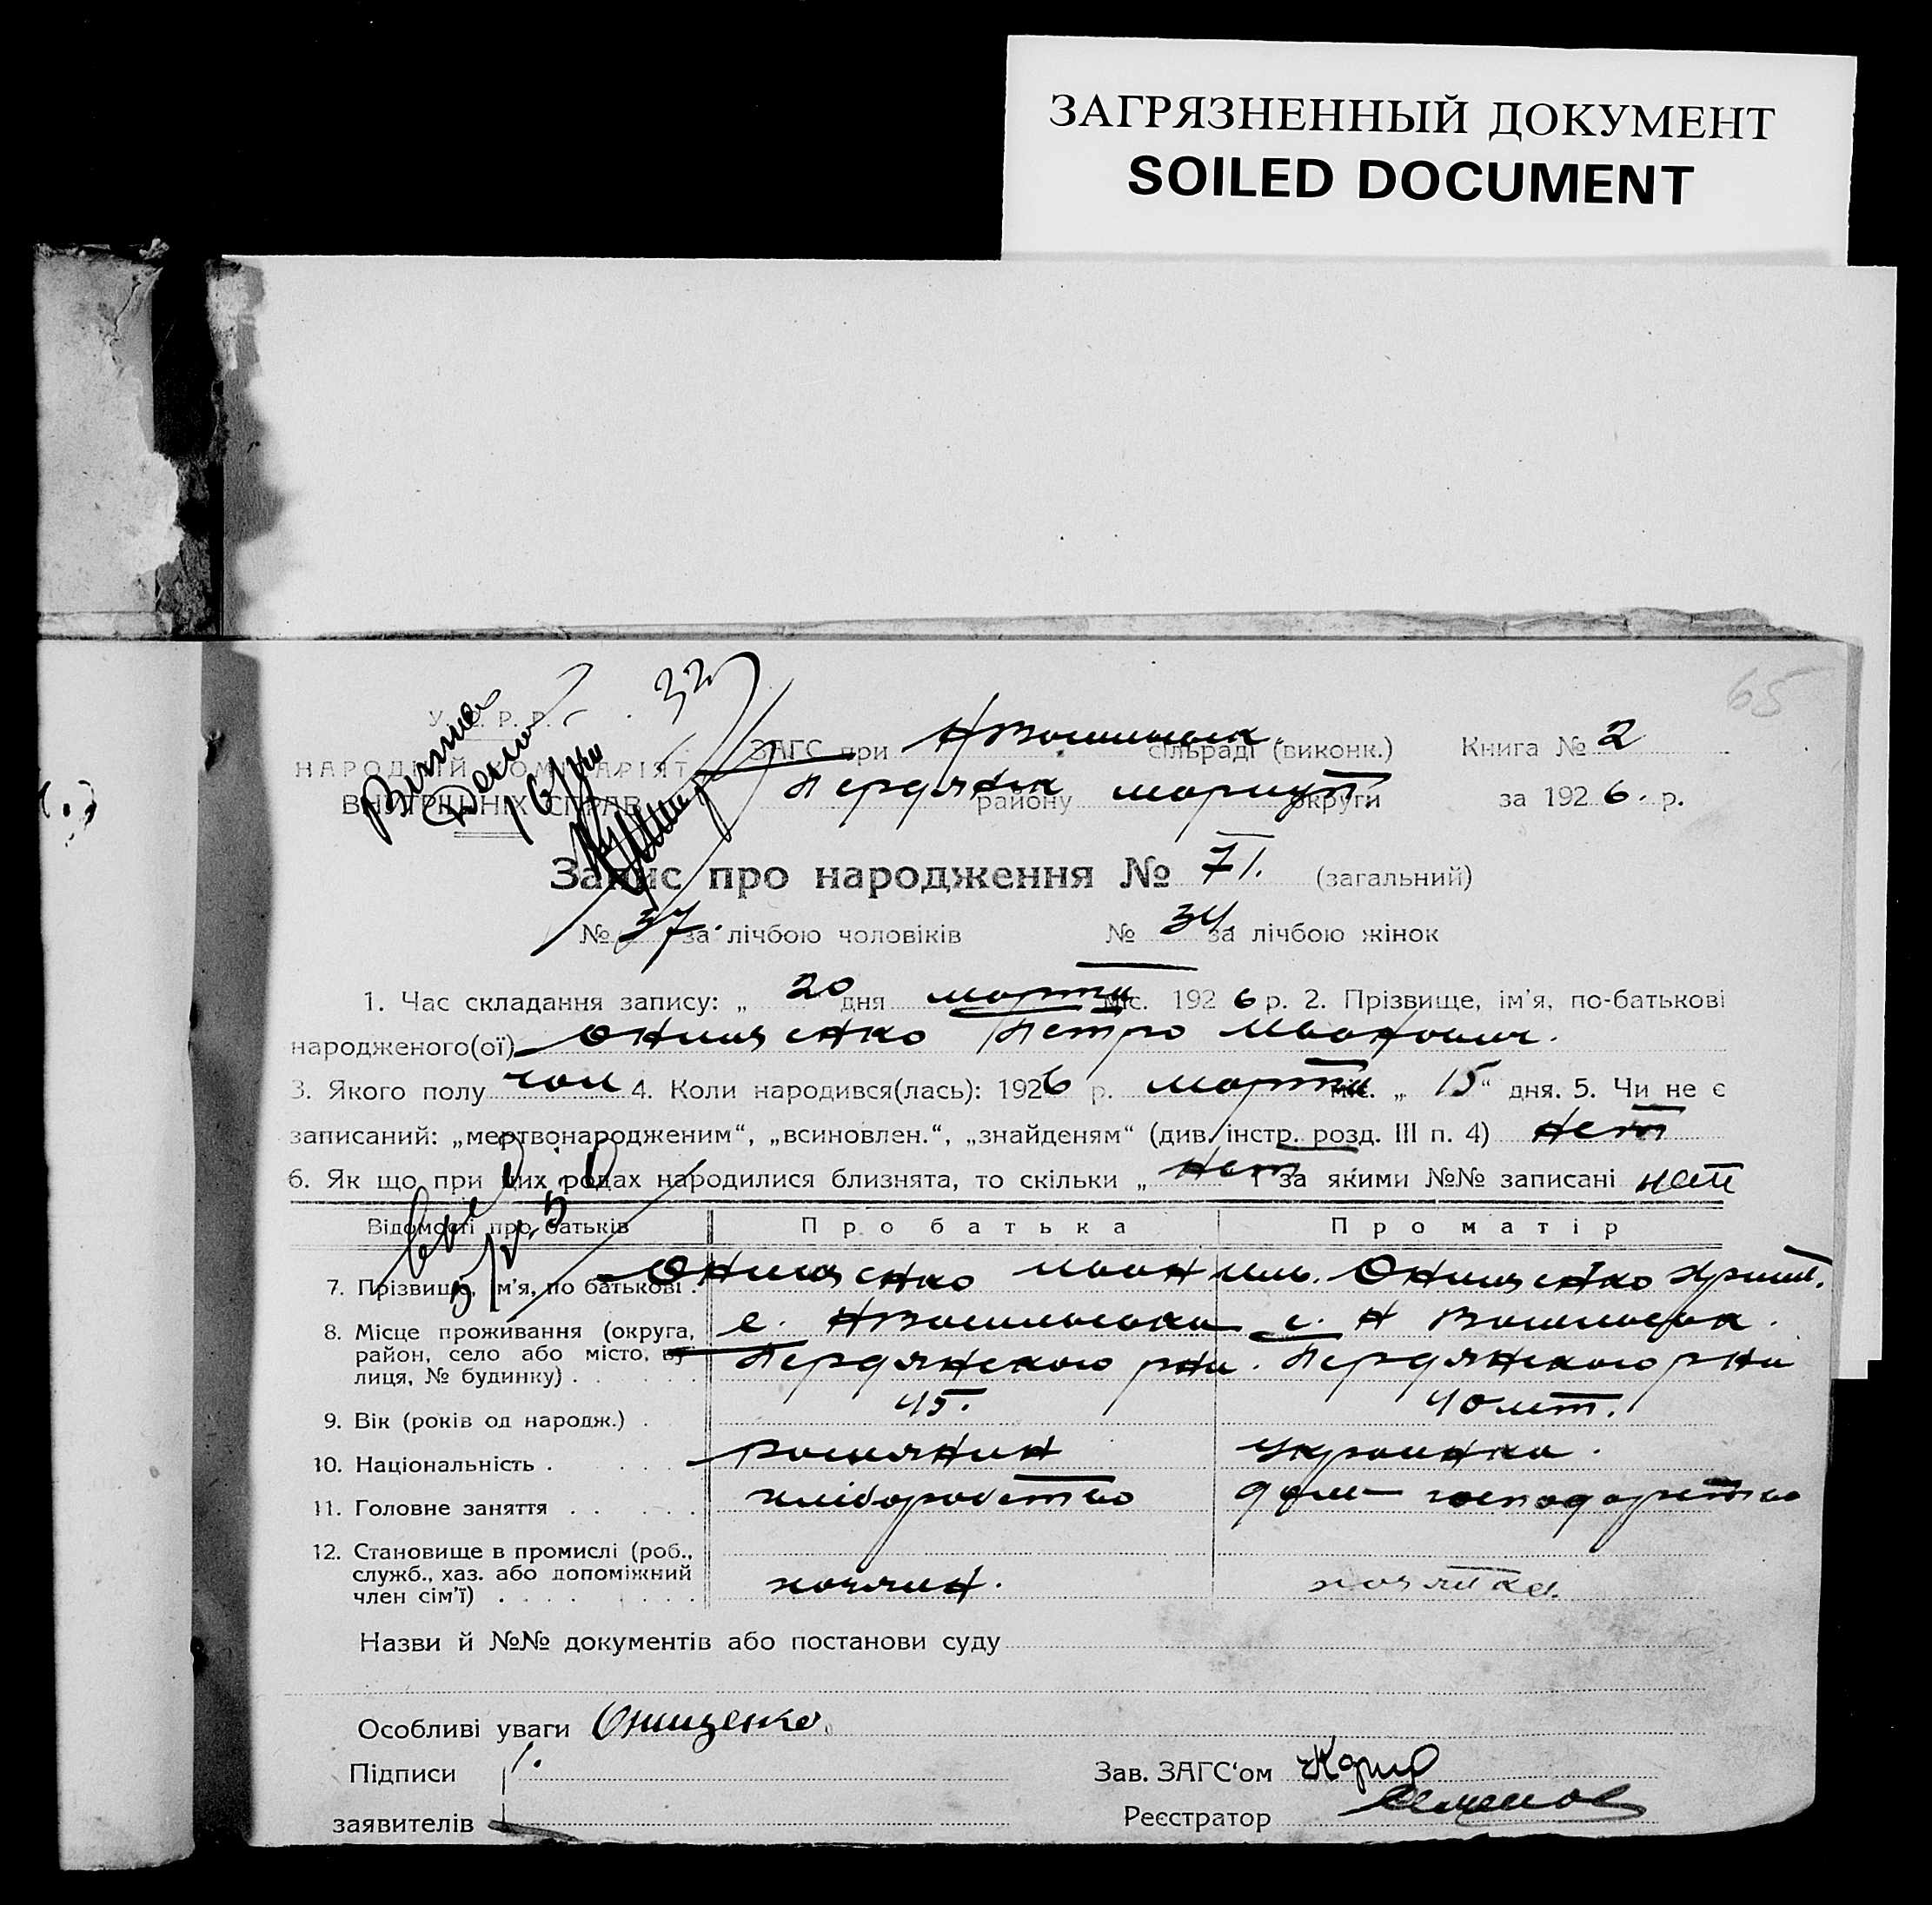 ЗАГРЯЗНЕННЫЙ ДОКУМЕНТ
SOILED DOCUMENT
65
У. С. Р. Р.
НАРОДНІЙ КОМІСАРІЯТ
ВНУТРІШНІХ СПРАВ
ЗАГС при сільраді (виконк.) Книга № 2
району округи за 1926. р.
Запис про народження № 71. (загальний)
№ 37. за лічбою чоловіків № 34 за лічбою жінок
1. Час складання запису: „ 20 дня марта міс. 1926 р. 2. Прізвище, ім'я, по-батькові
народженого(ої) Онищенко Петро Иванович.
3. Якого полу чол 4. Коли народився(лась): 1926 р. марта міс. „ 15 " дня. 5. Чи не є
записаний: „мертвонародженим", „всиновлен.", „знайденям" (див. інстр. розд. III п. 4) нет
6. Як що при цих родах народилися близнята, то скільки „ нет і за якими №№ записані нет
Відомості про батьків Про батька Про матір
7. Прізвище, ім'я, по батькові . Онищенко Иван Онищенко
8. Місце проживання (округа, с. с. Н
район, село або місто, ву- Бердянского рна. Бердянского рна
лиця, № будинку) . . . .
9. Вік (років од народж.) . 45. 40 лет.
10. Національність . . . . . россиянин украинка.
11. Головне заняття . . . . . хліборобство дом господарство
12. Становище в промислі (роб.,
служб., хаз. або допоміжний хозяин. хозяйка.
член сім'ї) . . . . . . . .
Назви й №№ документів або постанови суду
Особливі уваги Онищенко
Підписи Зав. ЗАГС'ом
заявителів Реєстратор